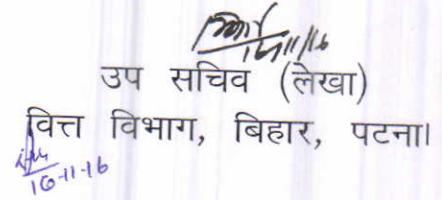 उप सचिव (लेखा)
वित्त विभाग, बिहार, पटना।
10-11-16